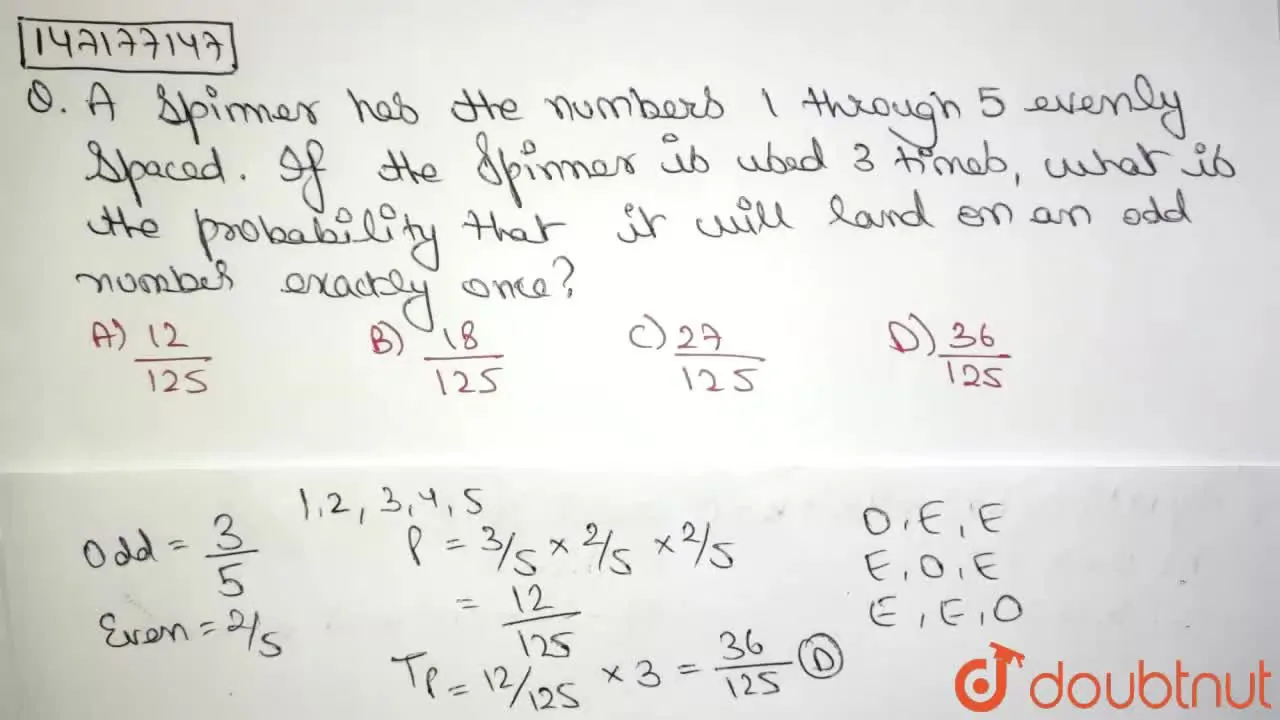 147177147
Q. A Spinner has the numbers 1 through 5 evenly
Spaced. If the Spinner is used 3 times, what is
the probability that it will land on an odd
number exactly once?
A) 12/125 B) 18/125 C) 27/125 D) 36/125
1,2, 3, 4, 5
Odd = 3/5
Even = 2/5
P = 3/5 × 2/5 × 2/5
= 12/125
Tp = 12/125 × 3 = 36/125 D
O, E, E
E, O, E
E, E, O
doubtnut